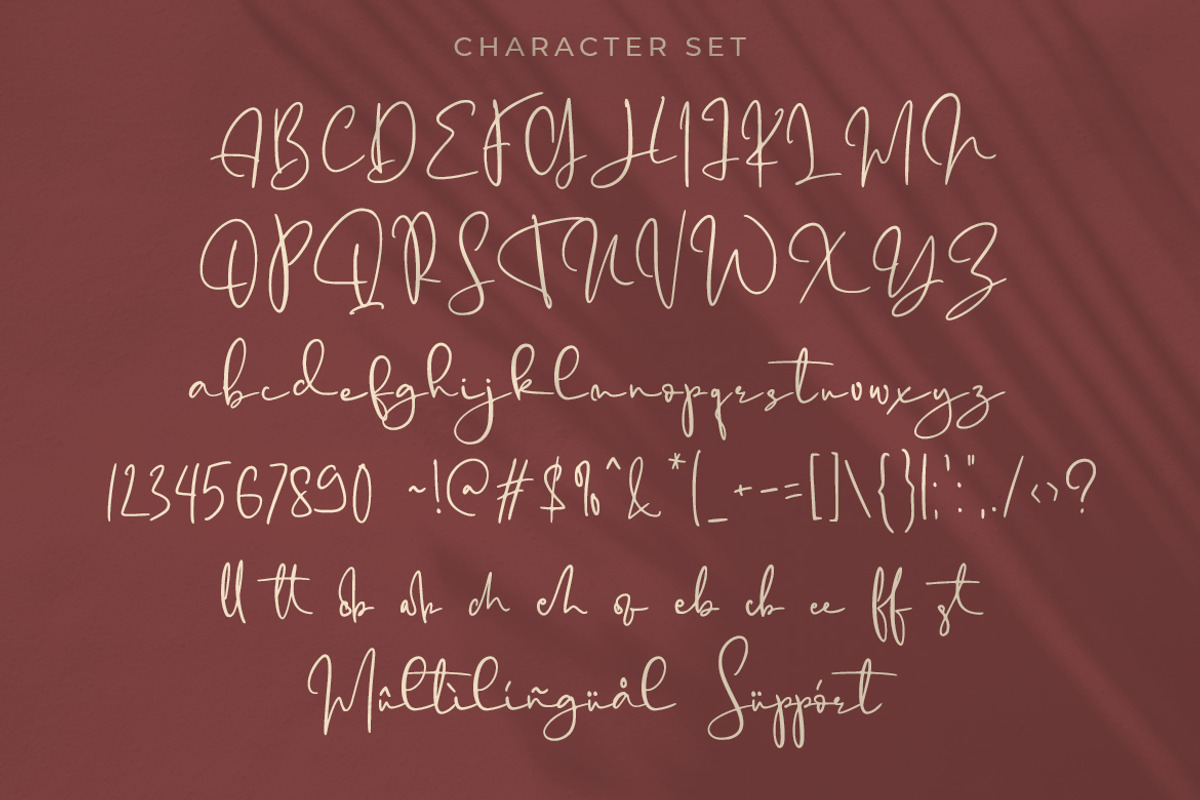 CHARACTER SET
ABCDEFGHIJKLMN
OPQRSTUVWXYZ
abcdefghijklmnopqrstuvwxyz
1234567890 ~!@#$%^&*(_+-=[]\{}|;':",./<>?
ll tt ob ab ch eh or eb cb ee ff st
Mûltìlíñgüål Süppórt